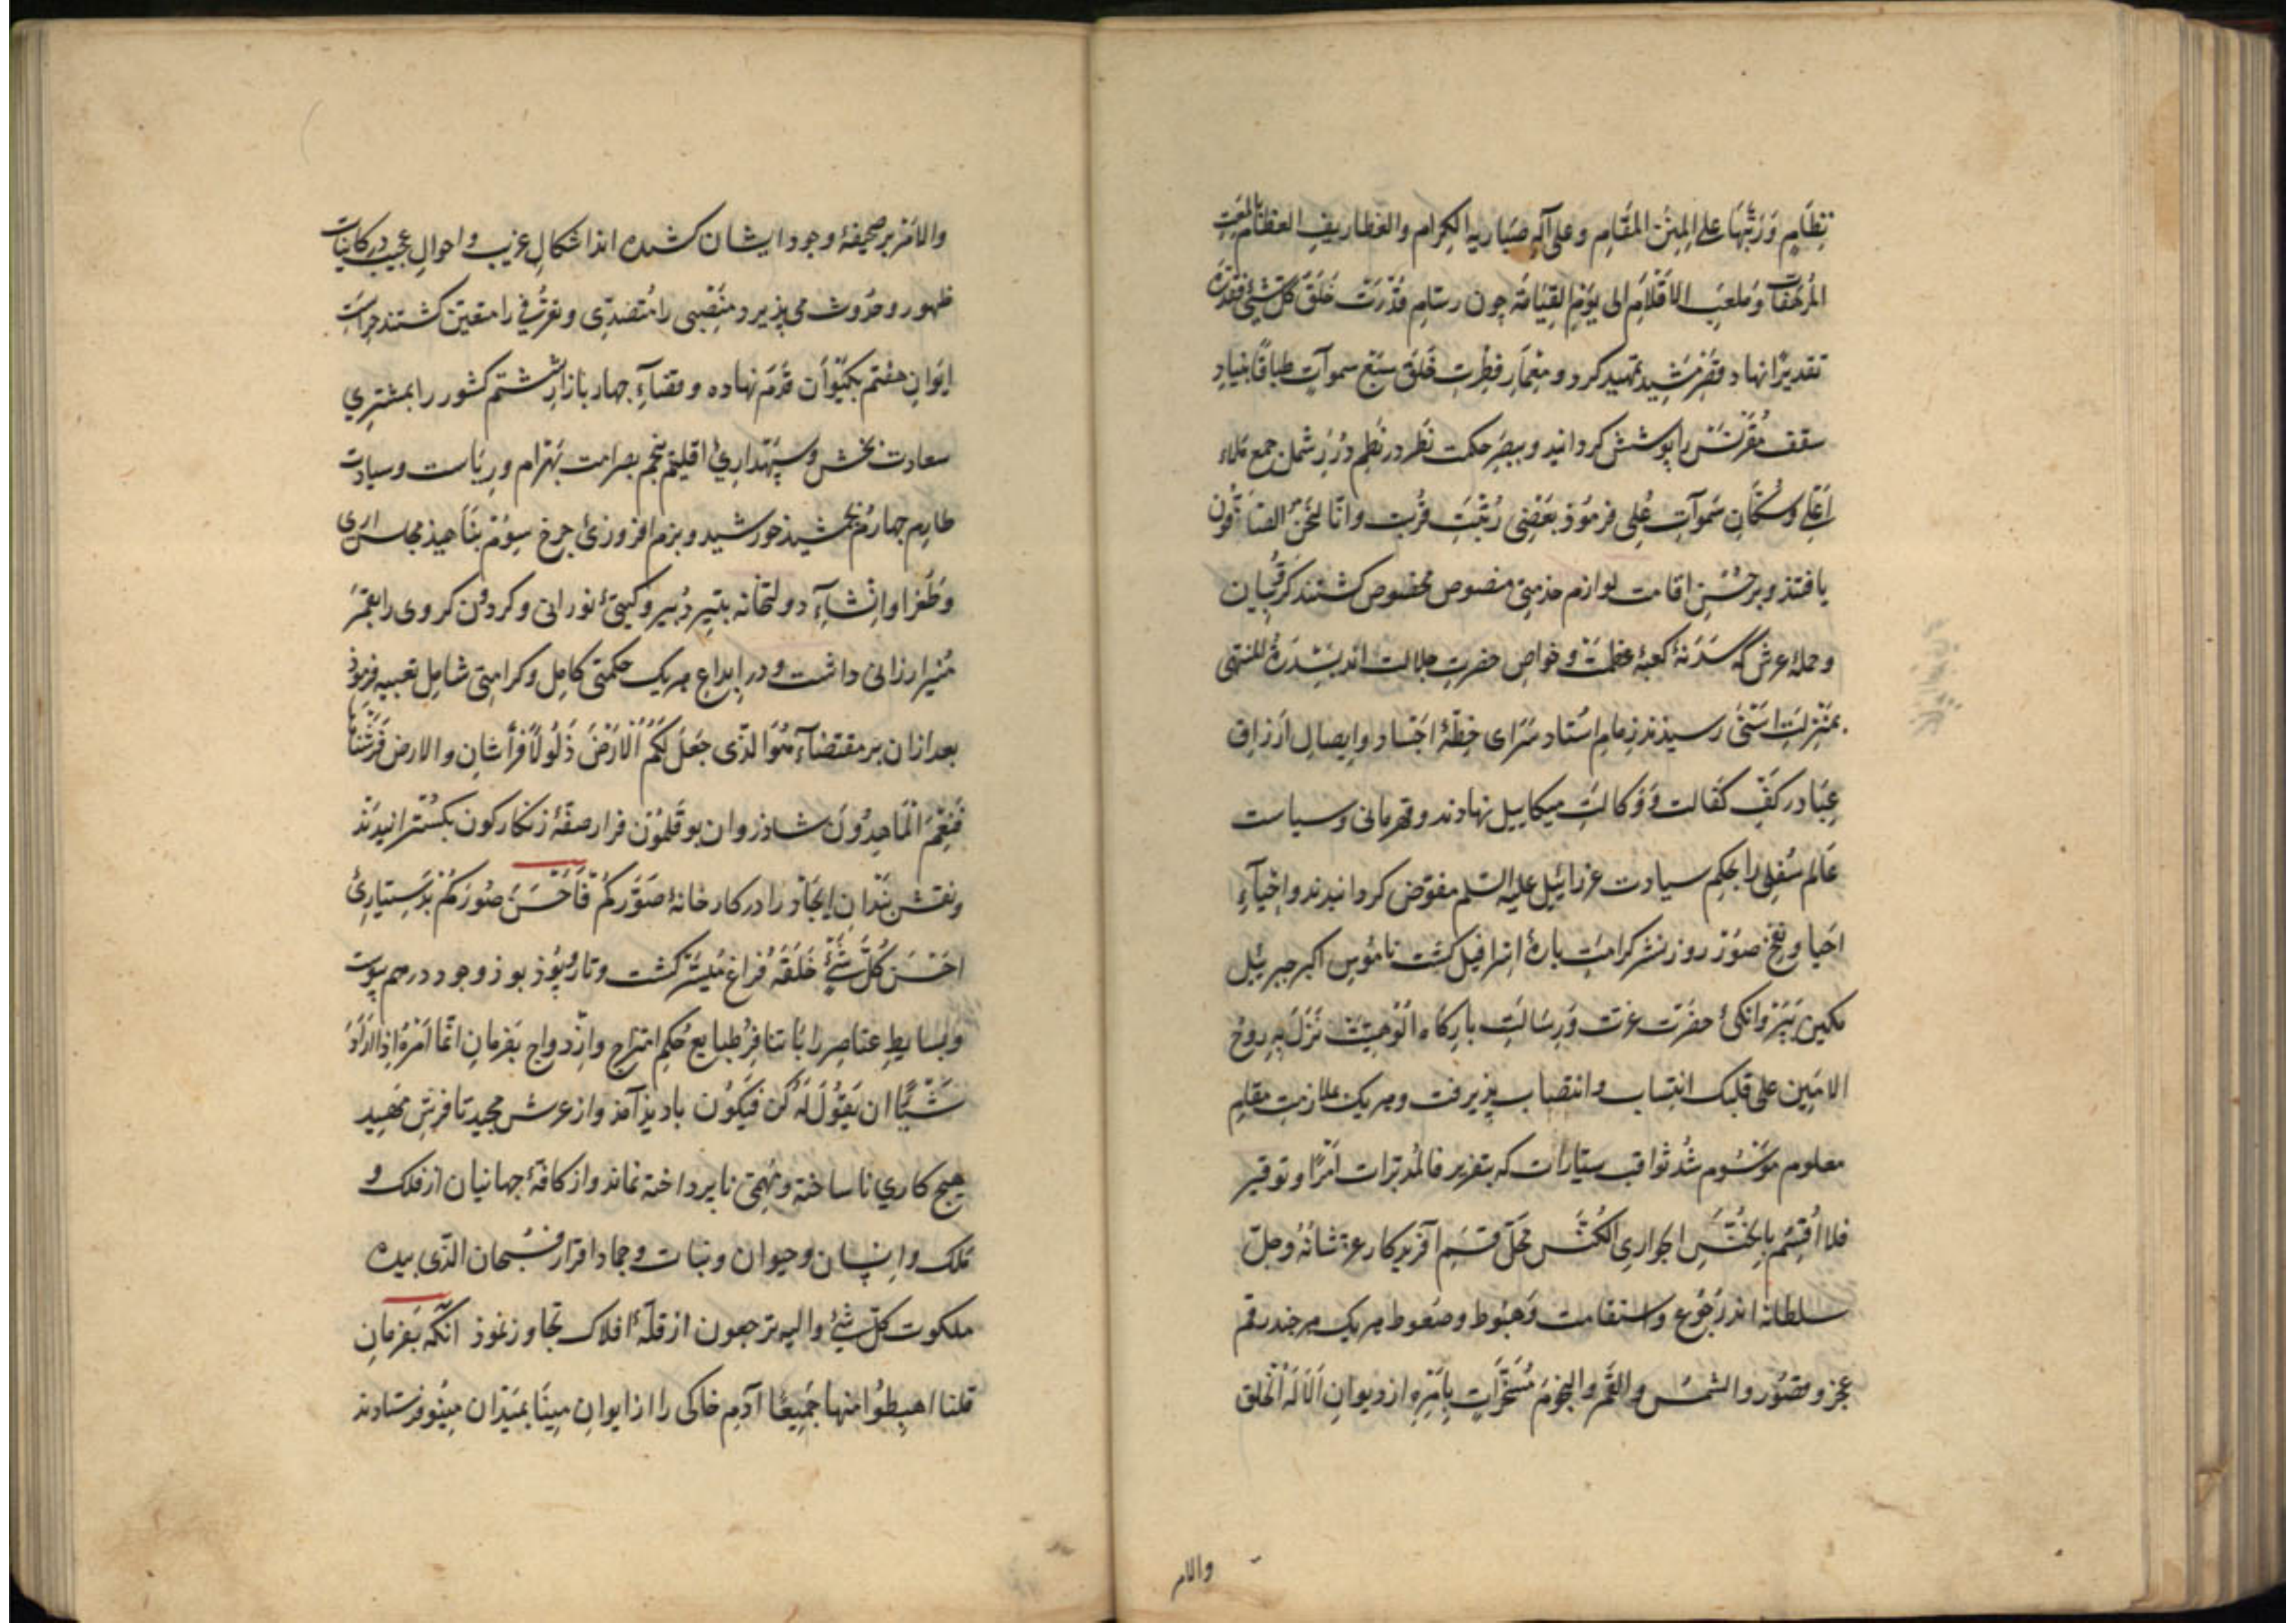 نِظَامٍ وَرَتَّبَهَا علی المِنَنِ المَقَامِ وعلی آلِهِ ضیاریه الکِرَام والغطاریفِ العظام لمَعَتِ
المُرهَفَات وَملعَبِ الاَقلَامِ الی یَوْمِ القِیَامَه چون رسّامِ قُدْرَت خَلَقَ کُلَّ شَیْءٍ فَقَدَّرَهُ
تقدیرًا نهاد قَصْرِ مَشِید تمهید کرد و مِعْمَارِ فِطْرت خَلَقَ سَبْعَ سموآتٍ طباقًا بنیادِ
سقف مُقَرْنَسْ را پوشش کردانید و ببصرِ حکمت نَظر در نَظمِ دُرَرِ شملِ جمع مَلاءِ
اَعْلی وسُکّانِ سَموآتِ عُلی فرمُوذ بَعْضِی رُتْبَتِ قُربت وانّا لَنَحْنُ الصَّآفُّون
یافتند و بر حُسْنِ اقامت لوازم خذمتی منصوص مخصوص کشتند کَرّوُبیان
وحملهٔ عرش که سَدَنَهٔ کعبهٔ عظمت و خواصِ حضرتِ جلالت اند بسِدْرَةُ المنتهی
بمَنْزِلَتِ اَسْنَی رسیذند زِمام استاد سَرَای خِطّهٔ اجساد وایصالِ اَرزاق
عِبَاد در کَفِّ کفالت وَوکالتِ میکاییل نهادند وقهرمانی وسیاست
عَالم سُفلِی را بحکمِ سیادت عزرائیل علیه السّلم مفوّض کردانیدند واِحْیَآءِ
اَحیا ونفخِ صوُر روز نشر کرامتِ بارهٔ اسرافیل کشت نامُوسِ اکبر جبرییل
بکمین حضرَت عزت وَرِسَالتِ بارکاه اُلُوهیّت نَزَلَ بِهِ رُوحُ
الامَین علی قلبک انتِساب وانتصاب پذیرفت وهر یک ملازمتِ مقامِ
معلوم موَسُوم شُد ثواقبِ سیّارات که بتقریر فالمُدبّرات اَمْرًا وتوقیر
فلا اُقْسِمُ بالخُنَّسِ الجَوارِی الکُنَّس محَلّ قَسَمِ آفریدکار عزّ شانُهُ وجلّ
سلطانُه اند رجُوع واستقامت وَهبُوط وصَعُوط هر یک هر چند رقمِ
عجز وقصُور والشَّمسَ والقَمَر والنّجُومَ مُسَخَّراتٍ بِاَمْرِهِ از دیوانِ اَلَا لَهُ الخلق
والامر
والاَمْرُ بر صحیفهٔ وجود ایشان کشیده اند اشکالِ غریب واحوالِ عجیب در کاینات
ظهور وحدُوث می پذیرد مَنْصَبی را مُتَصَدّی وتعرّفی را متعین کشتند حِراست
ایَوانِ هفتم بکیْوَان قَدَم نهاده وقضآءِ چهار بازارِ ششتم کشور را بمشتَرِیِ
سعادت بخش وسپَهْدارِیِٔ اقلیمِ پنجُم بصرامت بَهْرام وریَاست وسیادت
طارِم چهارُم بجَمشیذِ خورشید وبزم افروزِیٔ چرخِ سِوُم بنَاهیذ مجلس آرای
وطُغرا واِنْشآءِ دولتخانه بتیرِ دَبیر وکیتیٔ نورانی وکردُون کردی را بقمَرِ
مُنیر ارزانی داشت ودر اِبداعِ هر یک حکمتی کامِل وکرامتِی شامِل تعبیه فرموذ
بعد ازان بر مقتضآءِ هُوَ الّذی جَعَلَ لَکُمُ الاَرْضَ ذَلُولاً فرّاشان والارضَ فَرَشْنَاهَا
فَنِعْمَ الْمَاهِدُونَ شاذروانِ بوقلمُون فراز صفّهٔ زنکارکون بکسْترانیدند
ونقشبَندانِ ایجَاد را در کارخانهٔ صَوَّرَکُمْ فَاَحْسَنَ صُورَکُمْ بدَستیاریٔ
اَحْسَنَ کُلَّ شَیْءٍ خَلَقَهُ فَراغ مُیَسّر کشت وتار وپُوذ بوذ وجود درهم پیوست
وبسایطِ عناصِر را با تنافُرِ طبایع حُکمِ امتزاج واِزْدواج بفرمانِ اِنّمَا اَمْرُهُ اِذَا اَرَادَ
شَیْئًا ان یَقُولَ لَهُ کُن فَیَکُوُن بادیذ آمذ واز عرش مجید تا فرشِ مَهِید
هیچ کارِی ناساخته ومُهِمّی ناپرداخته نماند واز کافّهٔ جهانیان از فلک و
مَلَک واِنسان وحیوان ونبات وجماد اقرارِ فَسُبحان الذّی بیده
ملکوت کلّ شیٔ والیه ترجعون از قلّهٔ افلاک تجاوز نموذ آنکه بفرمانِ
قلنا اهبِطُوا منها جَمِیعًا آدمِ خاکی را از ایوانِ مِینَا بمَیدَان مِینُو فرستادند